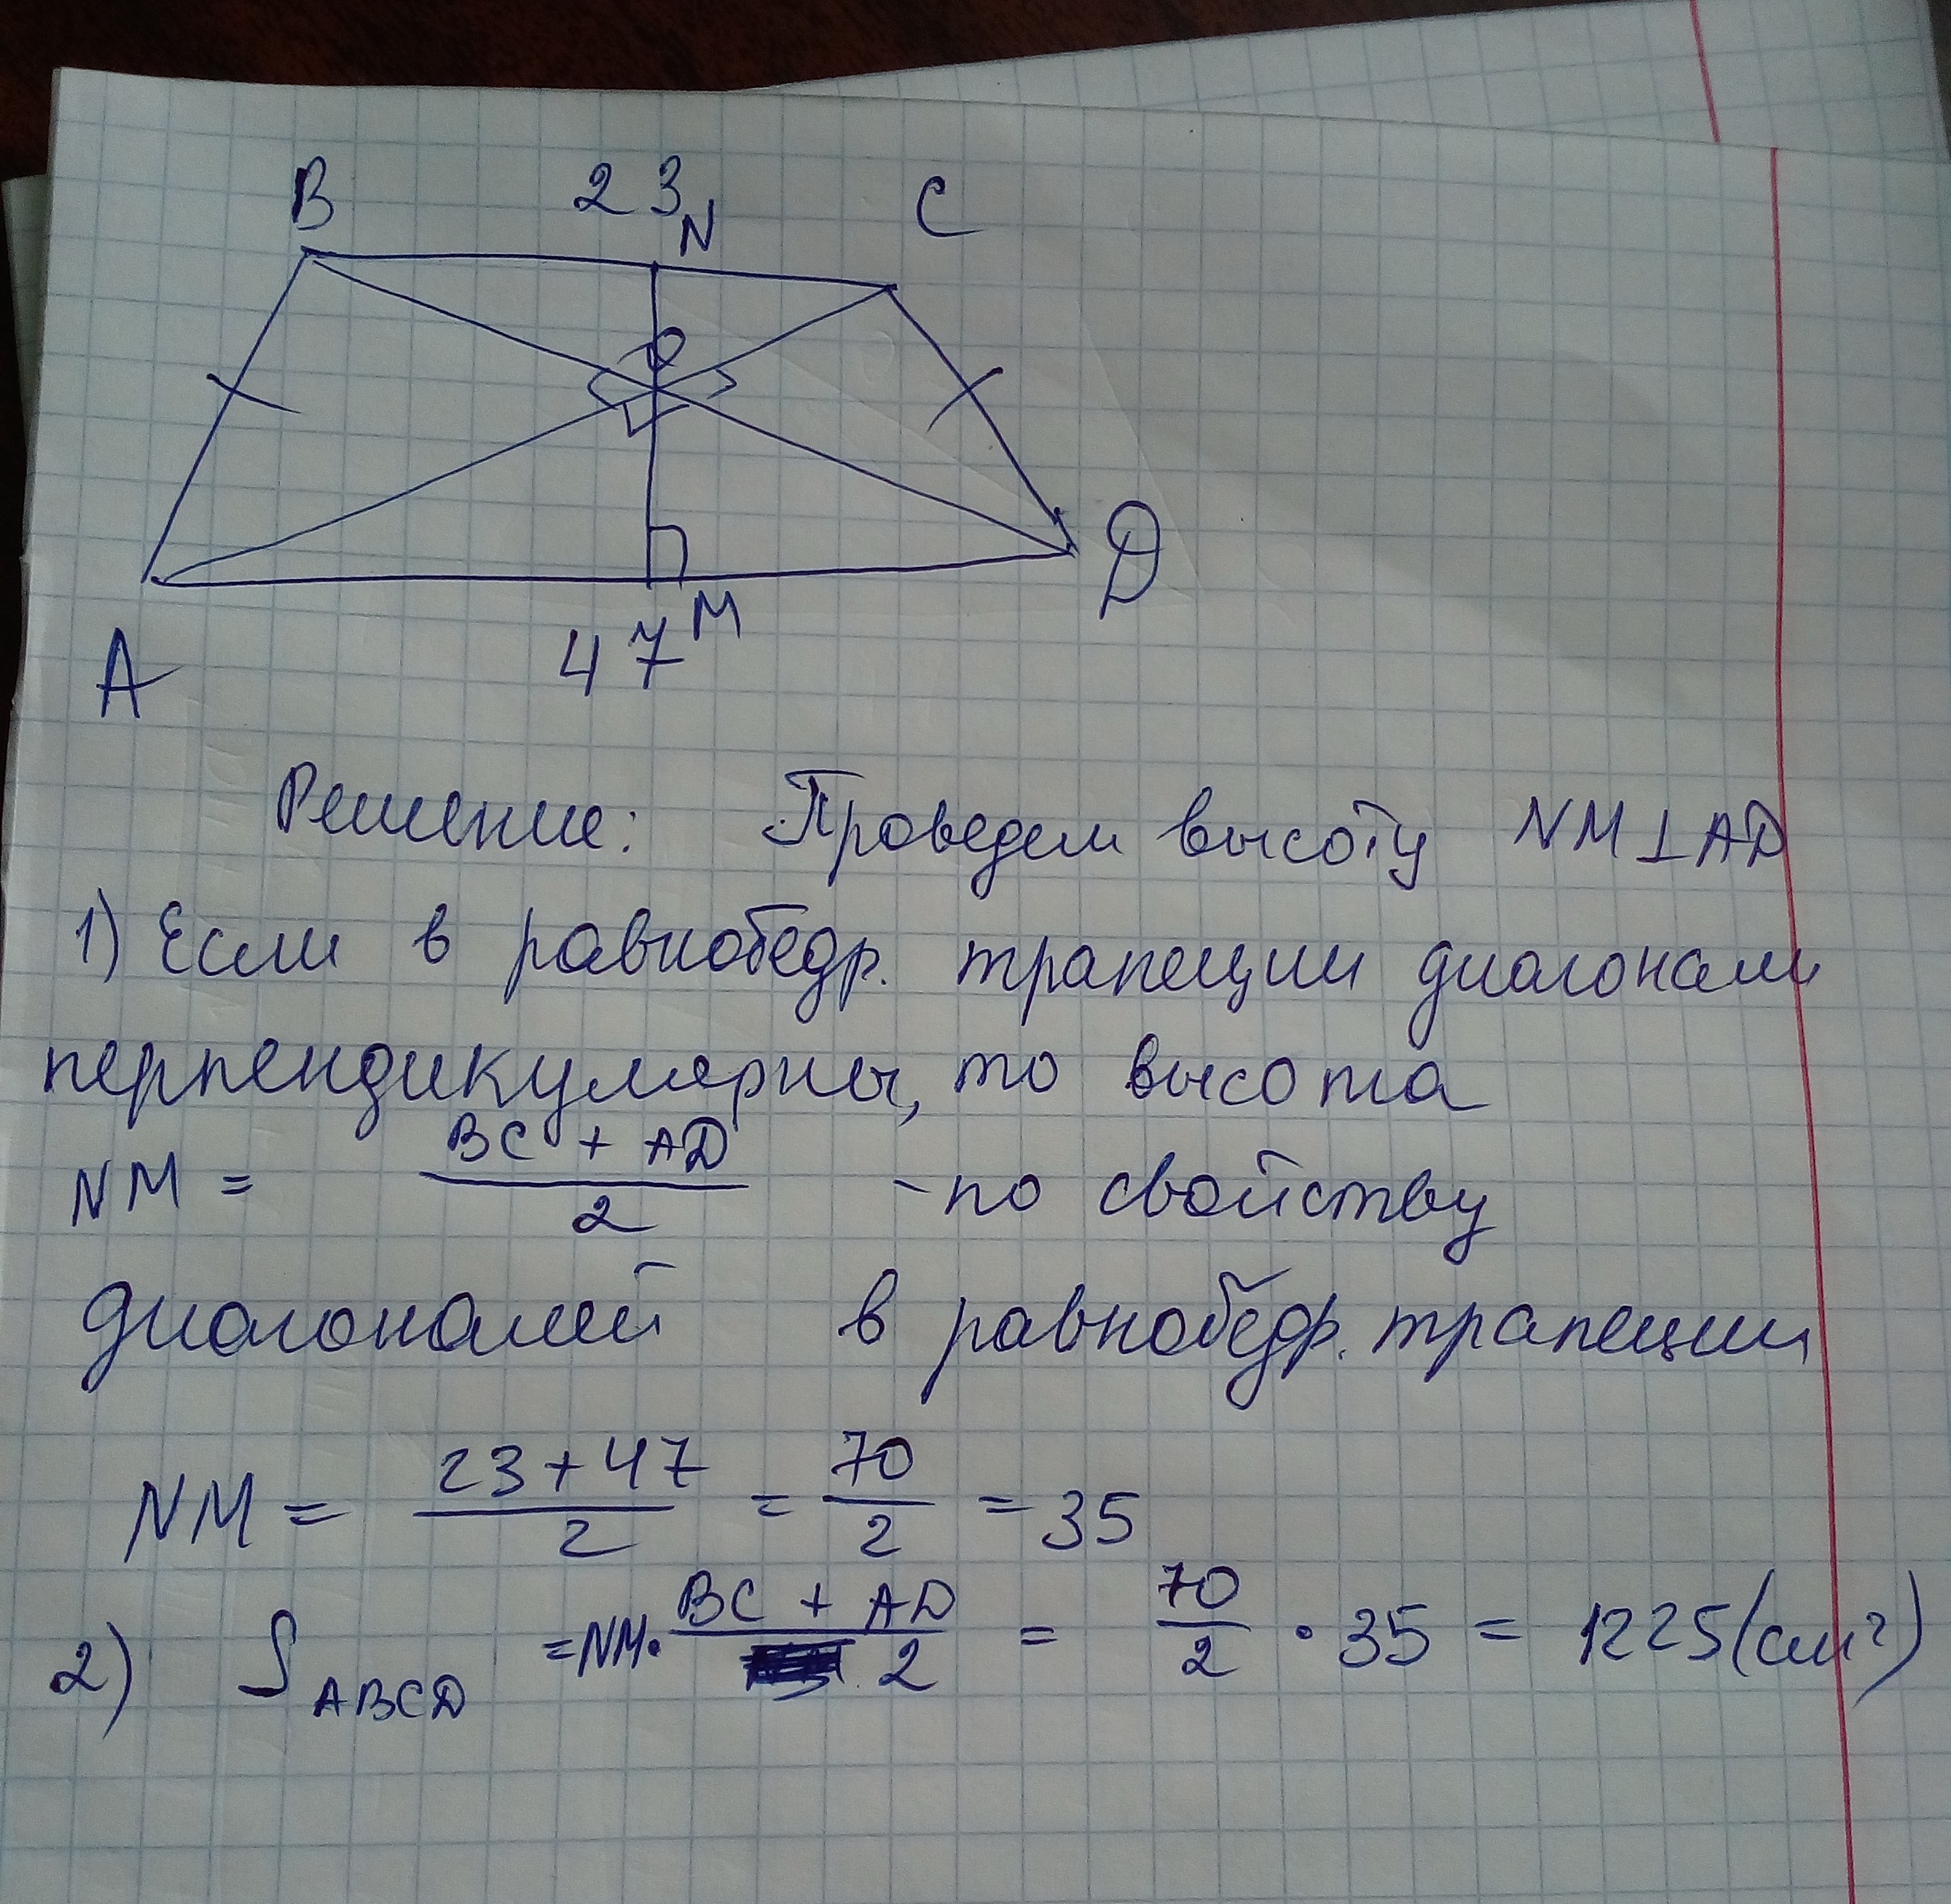 B 23 N C
O
A 47 M D
Решение: Проведем высоту NM⊥AD
1) Если в равнобедр. трапеции диагонали
перпендикулярны, то высота
NM = (BC + AD)/2 - по свойству
диагоналей в равнобедр. трапеции
NM = (23+47)/2 = 70/2 = 35
2) S ABCD = NM · (BC + AD)/2 = 70/2 · 35 = 1225(см²)